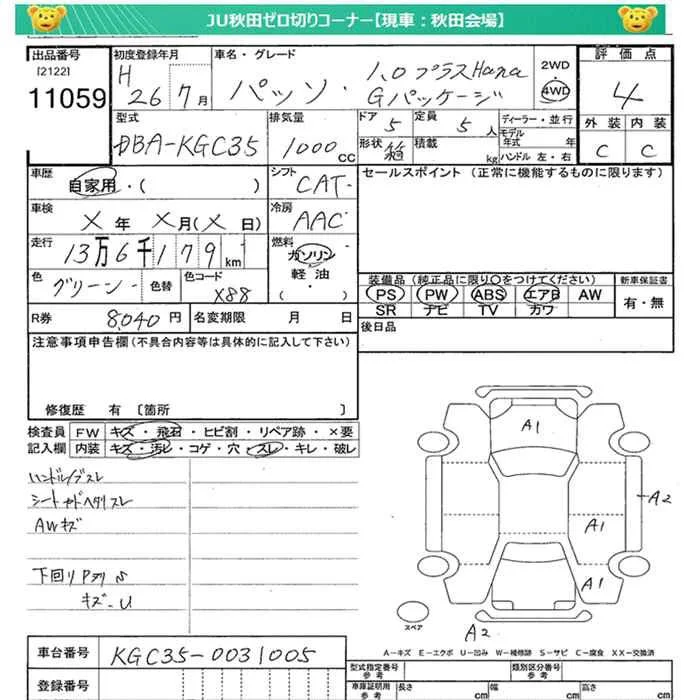 JU秋田ゼロ切りコーナー【現車：秋田会場】
出品番号 [2122] 11059
初度登録年月 H 26年 7月
車名・グレード パッソ・1.0プラスHana Gパッケージ
2WD 4WD
評価点 4
外装 C 内装 C
型式 DBA-KGC35
排気量 1000cc
ドア 5 定員 5人
形状 積載 kg
ディーラー・並行
モデル年式 年
ハンドル 左・右
車歴 自家用・( )
シフト CAT
セールスポイント (正常に機能するものに限ります)
車検 X年 X月(X日)
冷房 AAC
走行 13万6千179km
燃料 ガソリン・軽油・( )
色 グリーン 色替 色コード X88
装備品 (純正品に限り○をつけてください) 新車保証書
PS PW ABS エアB AW 有・無
SR ナビ TV カワ
R券 8,040円 名変期限 月 日
後日品
注意事項申告欄(不具合内容等は具体的に記入して下さい)
修復歴 有 [箇所 ]
検査員 FW キズ・飛石・ヒビ割・リペア跡・×要
記入欄 内装 キズ・汚レ・コゲ・穴・スレ・キレ・破レ
シートヤドヘタリスレ
AWキズ
下回り
キズ-U
A1
A2
A1
A1
スペア
A2
A－キズ E－エクボ U－凹み W－補修跡 S－サビ C－腐食 XX－交換済
車台番号 KGC35-0031005
型式指定番号 参考 類別区分番号 参考
登録番号
車庫証明用 参考 長さ cm 幅 cm 高さ cm